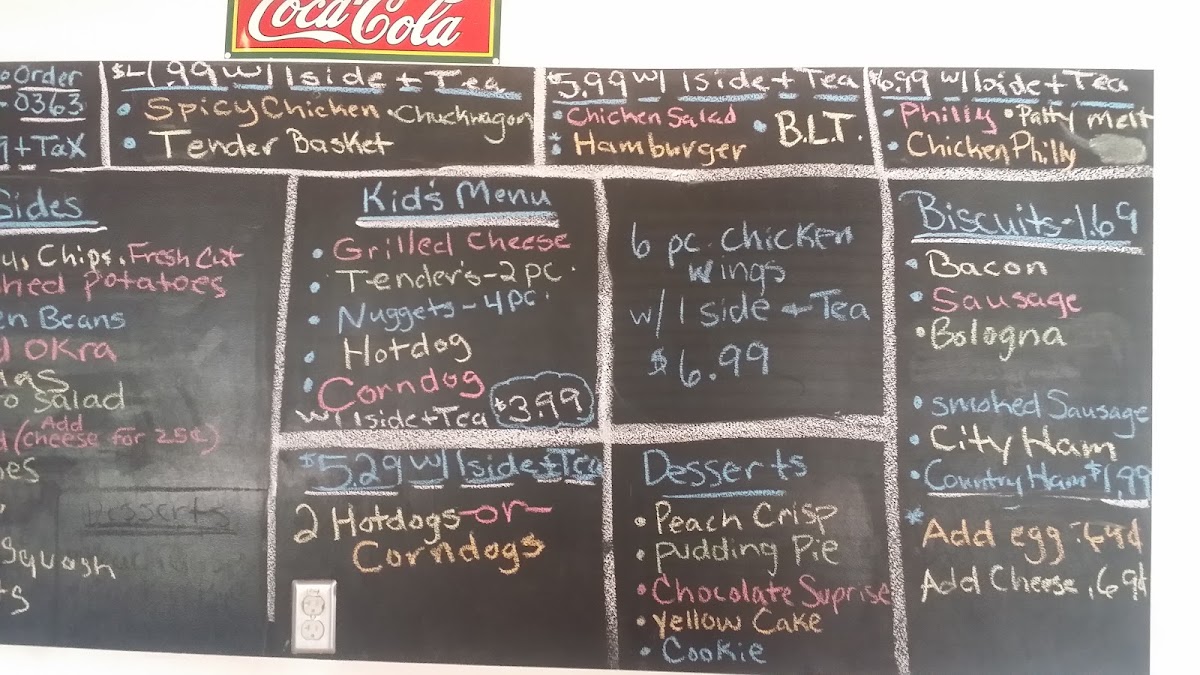 Coca-Cola
Order
0363
+ Tax
$4.99 w/ 1 side + Tea
• Spicy Chicken • Chuckwagon
• Tender Basket
$5.99 w/ 1 side + Tea
• Chicken Salad • B.L.T.
• Hamburger
$6.99 w/ 1 side + Tea
• Philly • Patty melt
• Chicken Philly
Sides
Chips, Fresh Cut
potatoes
Beans
OKra
Salad
(Add cheese for 25¢)
Squash
Desserts
Kid's Menu
• Grilled Cheese
• Tender's - 2 pc.
• Nuggets - 4 pc.
• Hotdog
• Corndog
w/ 1 side + Tea $3.99
6 pc. Chicken
wings
w/ 1 side + Tea
$6.99
$5.29 w/ 1 side + Tea
2 Hotdogs -or-
Corndogs
Desserts
• Peach Crisp
• pudding Pie
• Chocolate Suprise
• Yellow Cake
• Cookie
Biscuits - 1.69
• Bacon
• Sausage
• Bologna
• smoked Sausage
• City Ham
• Country Ham $1.99
* Add egg .69¢
Add Cheese .69¢